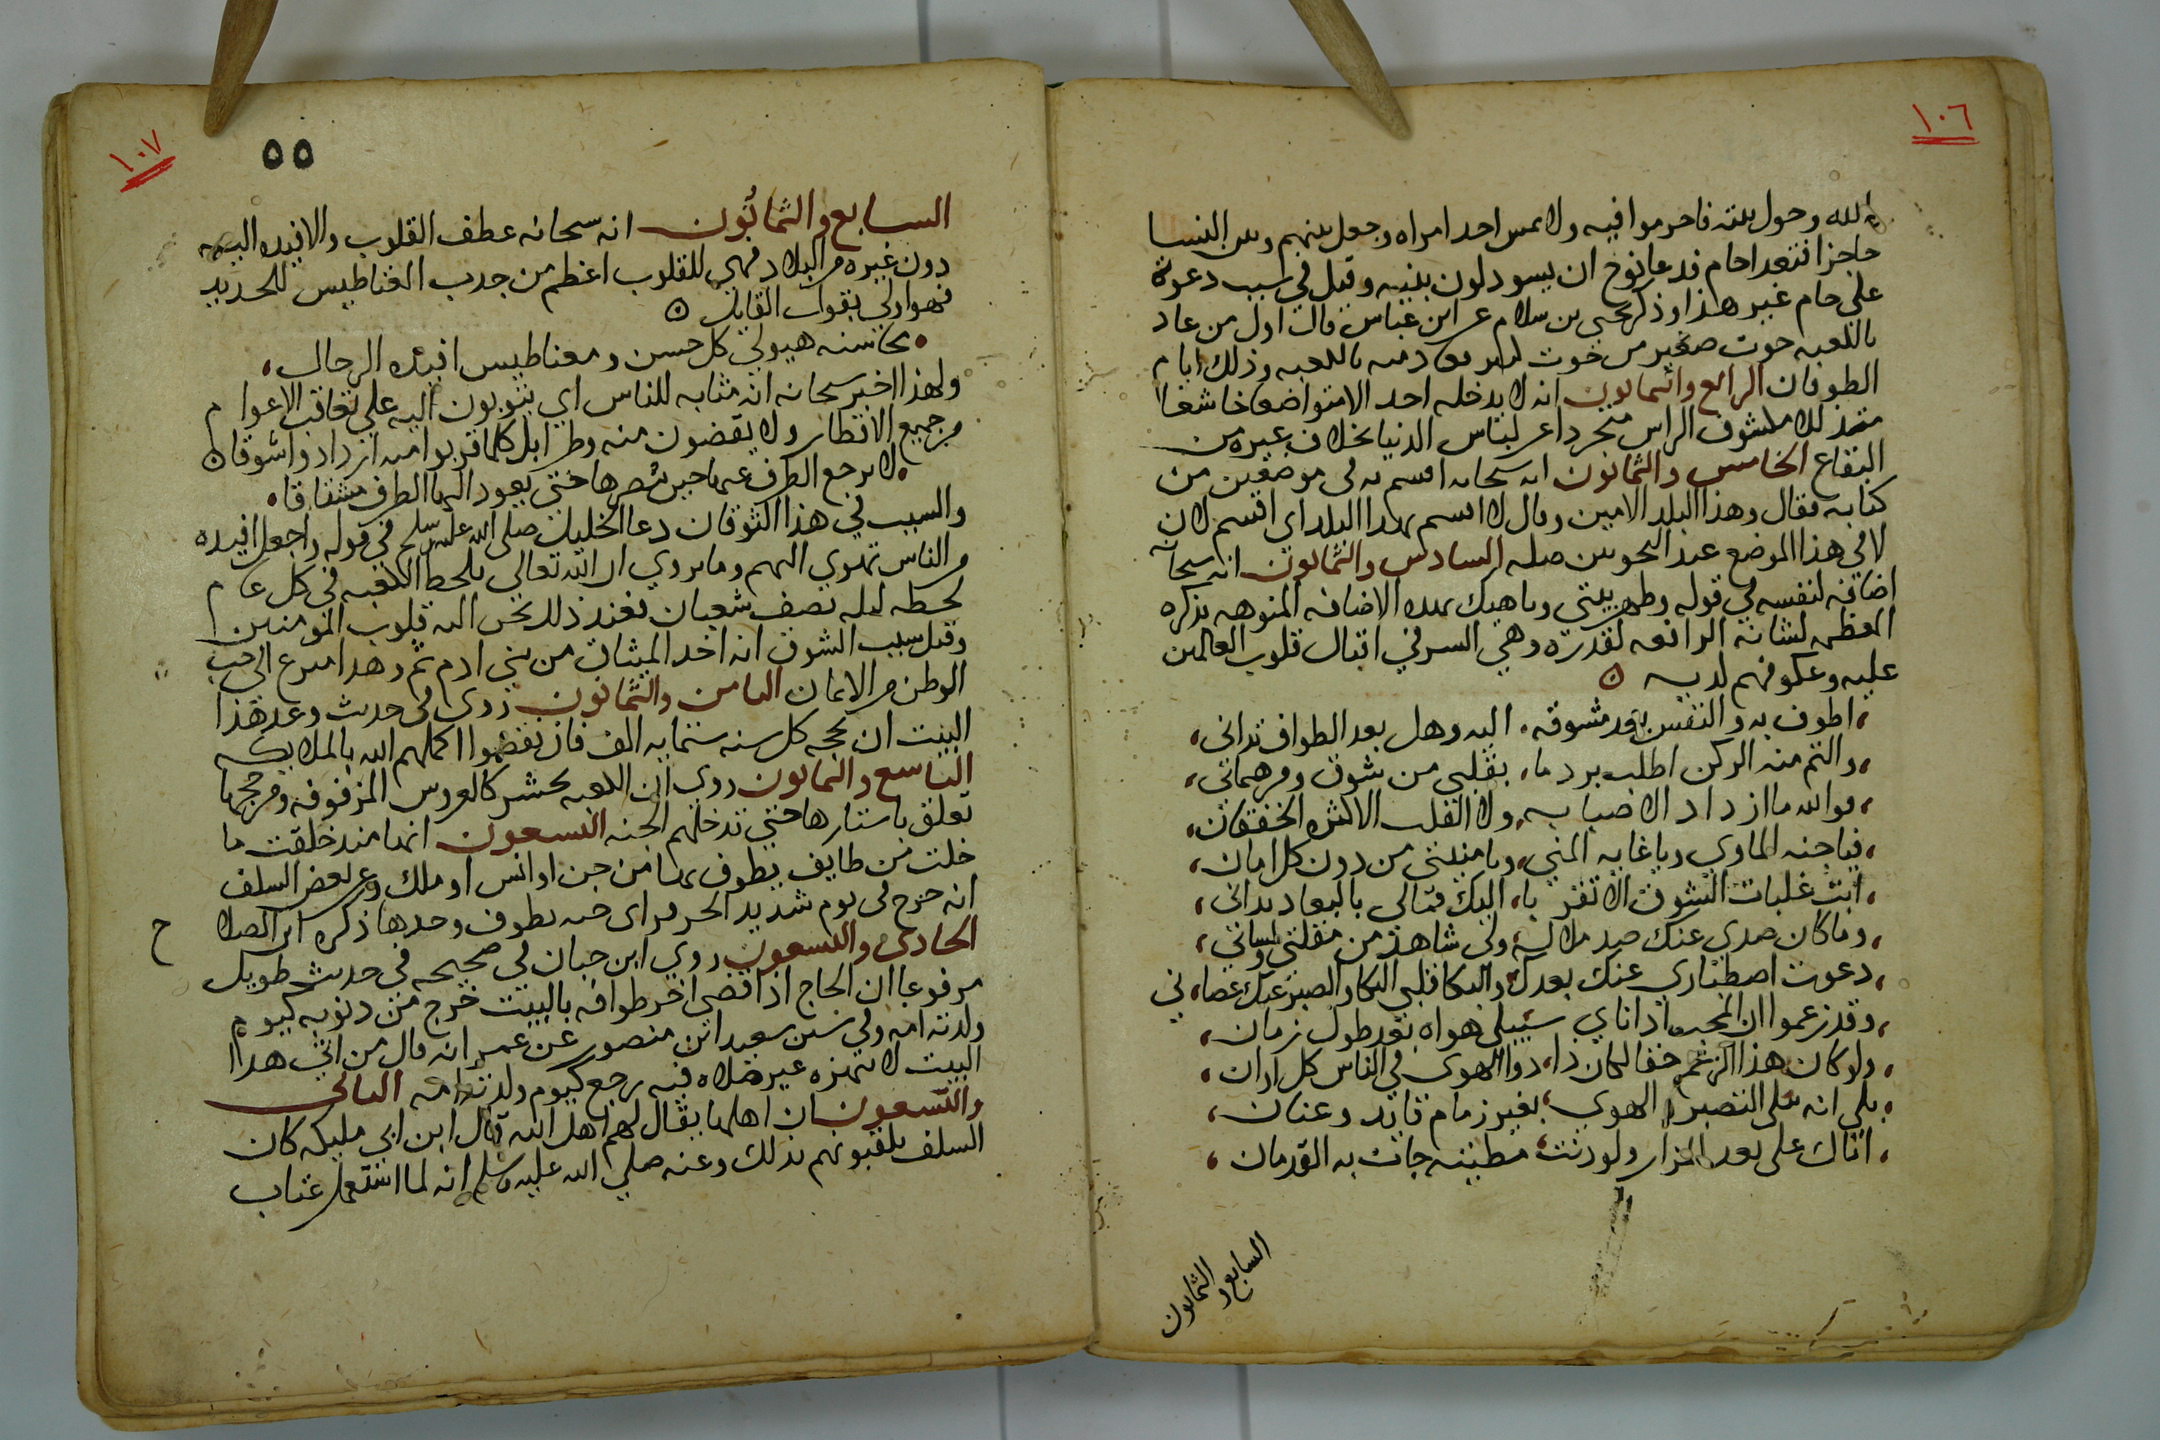 ١٠٦
الله وحول بيته فاحرموا فيه ولا يمس احد امراه وجعل بينهم وبين النسا
حاجزا فتعدا حام فدعا نوح ان يسود لون بنيه وقيل في سبب دعوة
على حام غير هذا وذكر يحيى بن سلام عن ابن عباس قال اول من عاد
بالكعبه حوت صغير من حوت كبير فعاد منه بالكعبه وذلك ايام
الطوفان الرابع والثمانون انه لا يدخله احد الا متواضعا خاشعا
متذللا مكشوف الراس متجردا عن لباس الدنيا بخلاف غيره من
البقاع الخامس والثمانون انه سبحانه اقسم به في موضعين من
كتابه فقال وهذا البلد الامين وقال لا اقسم بهذا البلد اي اقسم لان
لا في هذا الموضع عند النحويين صله السادس والثمانون انه سبحانه
اضافه لنفسه في قوله وطهر بيتي وناهيك بهذه الاضافه المنوهه بذكره
المعظمه لشانه الرافعه لقدره وهي السر في اقبال قلوب العالمين
عليه وعكوفهم لديه
اطوف به والنفس بعد مشوقه ، اليه وهل بعد الطواف تداني ،
والثم منه الركن اطلب برد ما ، بقلبي من شوق ومن هيماني ،
فوالله ما ازداد الا صبابه ، ولا القلب الا كثره الخفقان ،
فيا جنه الماوي ويا غايه المني ، ويا منيتي من دون كل امان ،
ابت غلبات الشوق الا تقربا ، اليك فمالي بالبعاد يداني ،
وما كان صدي عنك صد ملاله ، ولي شاهد من مقلتي ولساني ،
دعوت اصطباري عنك بعدك والبكا فلبي البكا والصبر عنك عصاني
وقد زعموا ان المحب اذا ناي سيبلي هواه بعد طول زمان ،
ولو كان هذا الزعم حقا لكان ذا ، دوا الهوى في الناس كل اوان ،
بلي انه يبلى التصبر والهوي ، بغير زمام قائد وعنان ،
اتاك على بعد المزار ولو ونت ، مطيته جات به القدمان ،
السابع والثمانون
١٠٧
٥٥
السابع والثمانون انه سبحانه عطف القلوب والافيده اليه
دون غيره من البلاد فهي للقلوب اعظم من جذب المغناطيس للحديد
فهو اولي بقول القايل
محاسنه هيولي كل حسن ومغناطيس افيده الرجال ،
ولهذا اخبر سبحانه انه مثابه للناس اي يثوبون اليه علي تعاقب الاعوام
من جميع الاقطار ولا يقضون منه وطرا بل كلما قربوا منه ازدادوا شوقا
لا يرجع الطرف عنها حين يبصرها حتي يعود اليها الطرف مشتاقا ،
والسبب في هذا الشوقان دعا الخليل صلى الله عليه وسلم في قوله واجعل افيده
من الناس تهوي اليهم وما يروي ان الله تعالى يلحظ الكعبه في كل عام
لحظه ليله نصف شعبان فعند ذلك تحن اليه قلوب المومنين
وقيل سبب الشوق انه اخذ الميثاق من بني ادم ثم وهذا منزع الى حب
الوطن من الايمان الثامن والثمانون روي في حديث وعد هذا
البيت ان يحجه كل سنه ستمايه الف فان نقصوا اكملهم الله بالملايكه
التاسع والثمانون روي ان الكعبه تحشر كالعروس المزفوفه ومن حجها
تعلق باستارها حتي تدخلهم الجنه التسعون انها منذ خلقت ما
خلت من طايف يطوف بها من جن او انس او ملك وعن بعض السلف
انه خرج في يوم شديد الحر فراى حيه تطوف وحدها ذكره ابن الصلاح
الحادي والتسعون روي ابن حبان في صحيحه في حديث طويل
مرفوعا ان الحاج اذا قضي اخر طوافه بالبيت خرج من ذنوبه كيوم
ولدته امه وفي سنن سعيد ابن منصور عن عمر انه قال من اتى هذا
البيت لا ينهزه غير صلاه فيه رجع كيوم ولدته امه الثاني
والتسعون ان اهلها يقال لهم اهل الله قال ابن ابي مليكه كان
السلف يلقبونهم بذلك وعنه صلي الله عليه وسلم انه لما استعمل عتاب